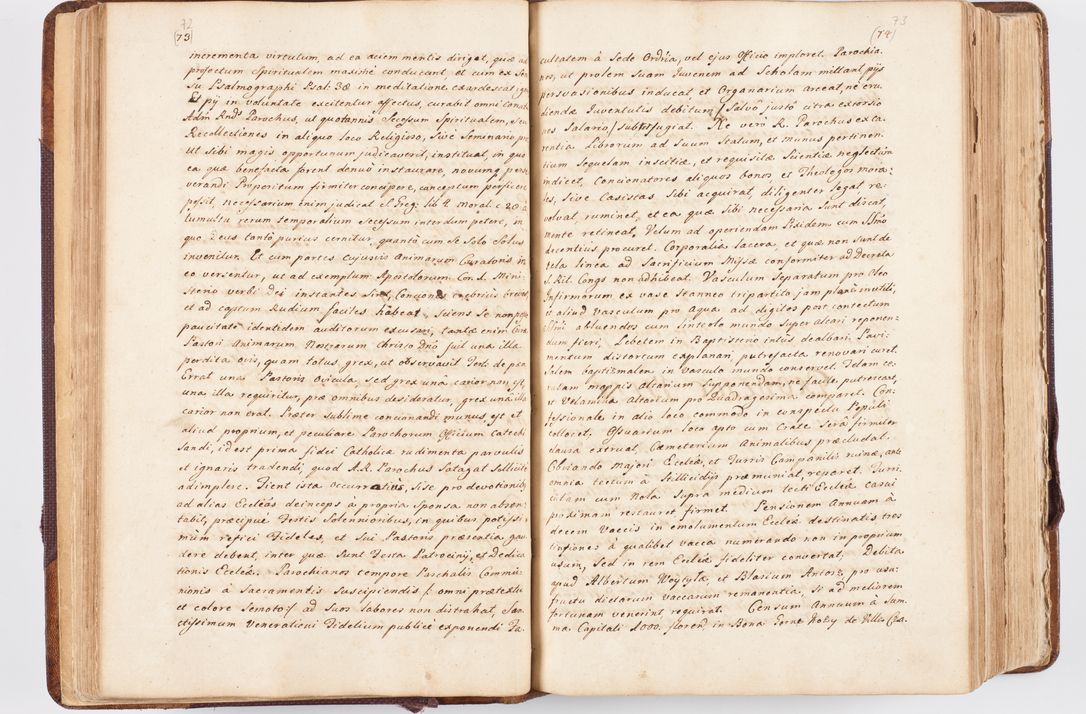 72
(73)
incrementa virtutum, ad ea aciem mentis dirigat, quæ ad
profectum Spiritualem maximè conducunt, et cum ex Sen
Su Psalmographi Psal: 38 in meditatione exardescat ignis
Et pij in voluntate excitentur affectus, curabit omni conatu
Adm Rnds Parochus, ut quotannis Secessum Spiritualem, Seu
Recollectiones in aliquo loco Religioso, Sivè Seminario, pro
ut Sibi magis opportunum judicaverit, instituat, in quo
ea quæ benefacta forent denuò instaurare, novumq perse
verandi Propositum firmiter concipere, conceptum perficere
possit, necessarium enim judicat S. Greg: lib 2 moral. c 28 à
tumultu rerum temporalium Secessum interdum petere, in
quo Deus tantò purius cernitur, quantò cum Se Solo Solus
invenitur. Et cum partes cujusvis Animarum Curatoris in
eo versentur, ut ad exemplum Apostolorum Con. S. Mini
Sterio verbi Dei instantes Sint, Conciones crebrius breves
et ad captum Rudium faciles habeat, Sciens Se non posse
paucitate identidem auditorum excusari, tantæ enim Curæ
Pastori Animarum Nostrarum Christo Dno fuit una illa
perdita ovis, quam totus grex, ut observavit Tert. de pæn
Errat una Pastoris ovicula, Sed grex una carior non est,
una illa requiritur, pro omnibus desideratur, grex una illa
carior non erat. Præter Sublime concionandi munus, est et
aliud proprium, et peculiare Parochorum Officium Catechi
Sandi, id est prima fidei Catholicæ rudimenta parvulis
et ignaris tradendi, quod A. R. Parochus Satagat Sollicitè
adimplere. Fient ista occurratius, Si Se pro devotionibus
ad alias Ecclesias deinceps à propria Sponsa non absen
tabit, præcipuè Festis Solennioribus, in quibus potissi
mùm refici Fideles, et Sui Pastoris præsentia gau
dere debent, inter quæ Sunt Festa Patrocinij, et Dedica
tionis Ecclæ. Parochianos tempore Paschalis Commu
nionis à Sacramentis Suscipiendis /: omni prætextu
et colore Semoto :/ ad Suos labores non distrahat, San
ctissimum Venerationi Fidelium publicè exponendi Fa
73
(74)
cultatem à Sede Ordria, vel ejus Officio imploret. Parochia
nos, ut prolem Suam Juvenem ad Scholam mittant, pijs
persvasionibus inducat et Organarium arceat, ne eru
diendæ Juventutis debitum / Salvò justò citra extorsio
nes Salario / Subterfugiat. Ne verò R. Parochus exta
rentia Librorum ad Suum Statum, et munus pertinen
tium Sequelam inscitiæ, et requisitæ Scientiæ neglectum
indicet, Concionatores aliquos bonos et Theologos mora:
les, Sive Casistas Sibi acquirat, diligenter legat re:
volvat ruminet, et ea quæ Sibi necessaria Sunt discat,
mente retineat, Velum ad operiendam Pixidem cum SSmo
decentius procuret. Corporalia lacera, et quæ non Sunt de
tela linea ad Sacrificium Missæ conformiter ad Decreta
S. Rit. Congs non adhibeat. Vasculum Separatum pro Oleo
Infirmorum ex vase stanneo tripartito jam planè inutili,
et aliud vasculum pro aqua ad digitos post contactum
SSmi abluendos cum linteolo mundo Super Altari reponen=
dum fieri, Lebetem in Baptisterio intùs dealbari, Pavi:
mentum distortum explanari putrefacta renovari curet.
Salem baptismalem in vasculo mundo conservet. Telam ce:
ratam mappis altarium Supponendam, ne facile putrescat,
et Velamina Altarium pro Quadragesima comparet. Con:
fessionale in alio loco commodo in conspectu Populi
collocet. Ossuarium loco apto cum Crate Sera firmiter
clausa extruat, Cæmeterium Animalibus præcludat.
Obviando majori Ecclæ, et Turris Campanilis ruinæ, ante
omnia tectum à Stillicidijs præmuniat, reparet. Turri:
culam cum Nola Supra medium tecti Ecclæ casui
proximam restauret firmet. Pensionem Annuam à
decem Vaccis in emolumentum Ecclæ destinatis tres
tinfiones à qualibet vacca numerando non in proprium
usum, Sed in rem Ecclæ fideliter convertat. Debita
apud Albertum Woytyła, et Blasium Antosz, pro usu:
fructu dictarum vaccarum remanentia, Si ad meliorem
fortunam venerint requirat. Censum Annuum à Sum
ma Capitali 1000. floren. in Bona de Villis Cza.